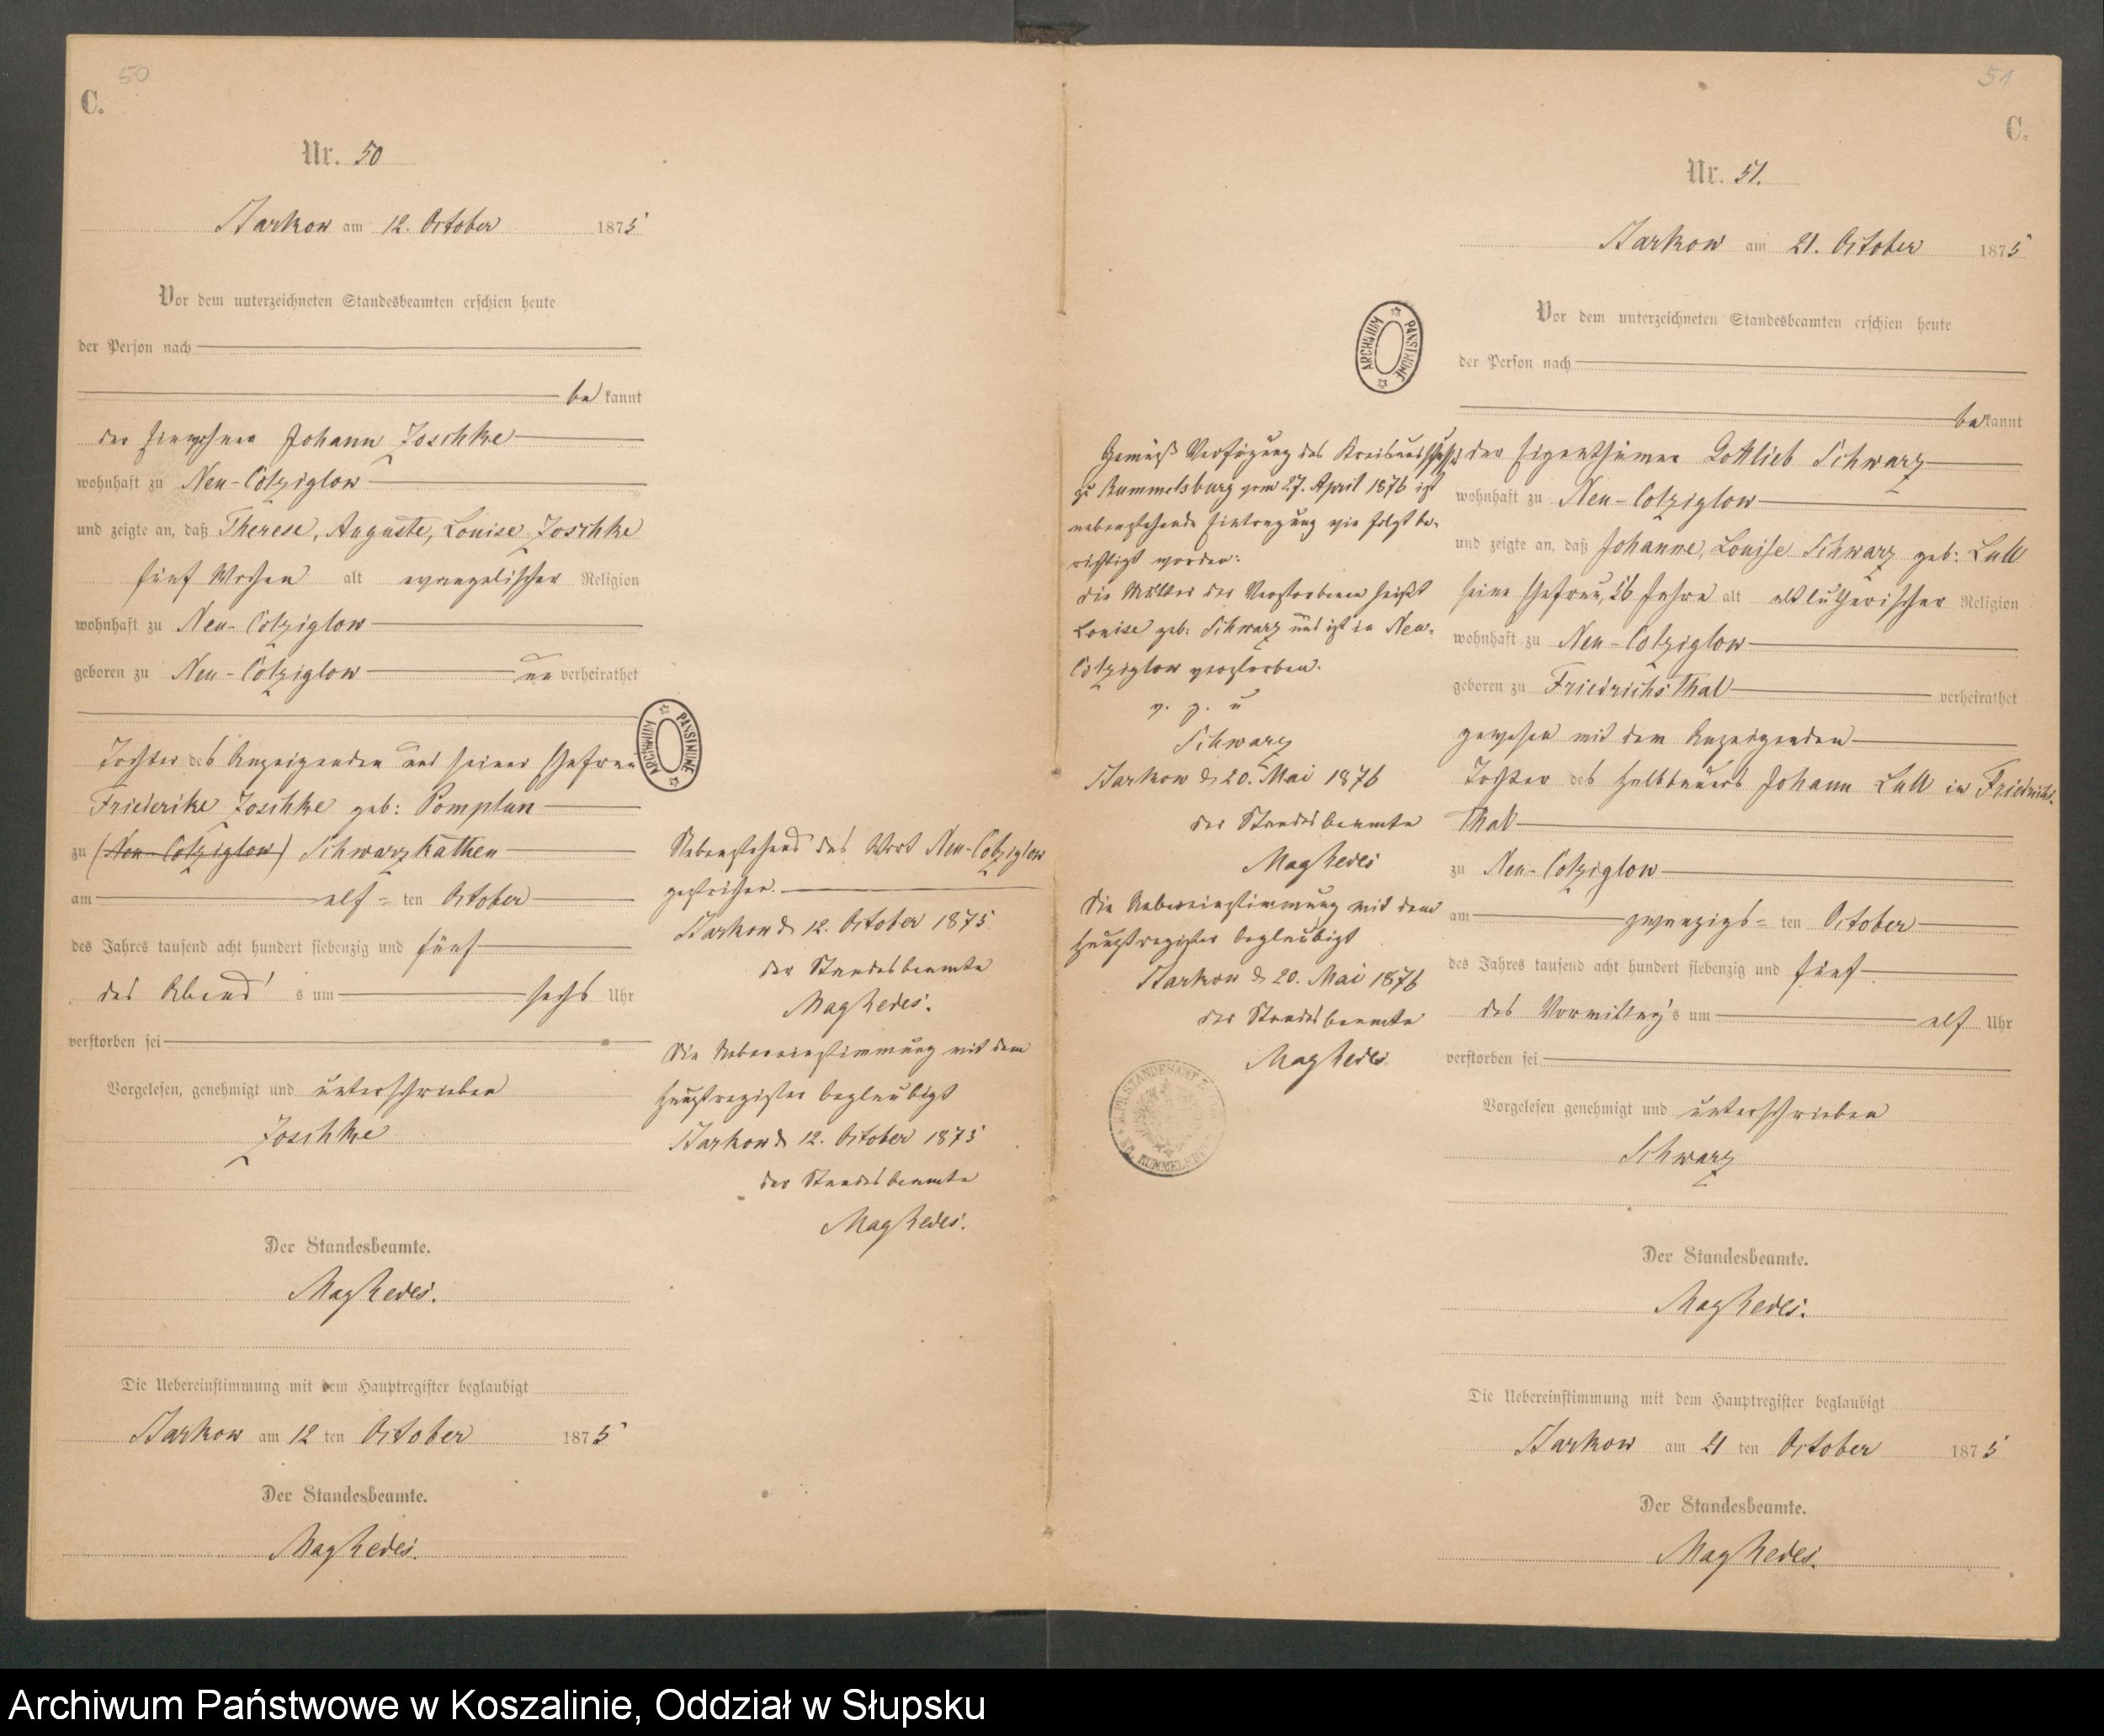 50
C.
Nr. 50
Barkow am 12. October 1875
Vor dem unterzeichneten Standesbeamten erschien heute
der Person nach
bekannt
der Einwohner Johann Joschke
wohnhaft zu Neu-Colziglow
und zeigte an, daß Therese, Auguste, Louise Joschke
fünf Wochen alt evangelischer Religion
wohnhaft zu Neu-Colziglow
geboren zu Neu-Colziglow unverheirathet
Tochter des Anzeigenden und seiner Ehefrau
Friederike Joschke geb: Pomplun
zu (Neu-Colziglow) Schwarzkathen
am elf-ten October
des Jahres tausend acht hundert siebenzig und fünf
des Abends um sechs Uhr
verstorben sei
Vorgelesen, genehmigt und unterschrieben
Joschke
Der Standesbeamte.
Die Uebereinstimmung mit dem Hauptregister beglaubigt
Barkow am 12 ten October 1875
Der Standesbeamte.
ARCHIWUM PAŃSTWOWE
Nebenstehend das Wort Neu-Colziglow
gestrichen.
Barkow d. 12. October 1875
der Standesbeamte
Die Uebereinstimmung mit dem
Hauptregister beglaubigt
Barkow d. 12. October 1875
der Standesbeamte
51
C.
Nr. 51.
Barkow am 21. October 1875
Vor dem unterzeichneten Standesbeamten erschien heute
der Person nach
bekannt
der Eigenthümer Gottlieb Schwarz
wohnhaft zu Neu-Colziglow
und zeigte an, daß Johanne, Louise Schwarz geb: Lull
seine Ehefrau, Jahre alt altlutherischer Religion
wohnhaft zu Neu-Colziglow
geboren zu Friedrichsthal verheirathet
gewesen mit dem Anzeigenden
Tochter des Halbbauers Johann Lull in Friedrichs-
thal
zu Neu-Colziglow
am zwanzigs-ten October
des Jahres tausend acht hundert siebenzig und fünf
des Vormittag's um elf Uhr
verstorben sei
Vorgelesen genehmigt und unterschrieben
Schwarz
Der Standesbeamte.
Die Uebereinstimmung mit dem Hauptregister beglaubigt
Barkow am 21 ten October 1875
Der Standesbeamte.
ARCHIWUM PAŃSTWOWE
Gemäß Verfügung des Kreisausschusses
zu Rummelsburg vom 27. April 1876 ist
nebenstehende Eintragung wie folgt be-
richtigt worden:
die Mutter der Verstorbenen heißt
Louise geb: Schwarz und ist in Neu-
Colziglow verstorben.
v. g. u
Schwarz
Barkow d. 20. Mai 1876
der Standesbeamte
Die Uebereinstimmung mit dem
Hauptregister beglaubigt
Barkow d. 20. Mai 1876
der Standesbeamte
Archiwum Państwowe w Koszalinie, Oddział w Słupsku